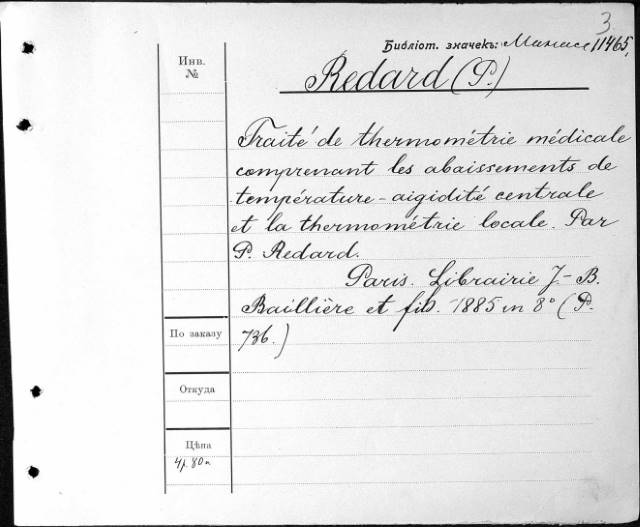 3
Библіот. значекъ: 11465,
Инв.
№
Redard (P.)
Traité de thermométrie médicale
comprenant les abaissements de
température - aigidité centrale
et la thermométrie locale. Par
P. Redard.
Paris. Librairie J.-B.
Baillière et fils. 1885 in 8° (P.
По заказу
736.)
Откуда
Цѣна
4р. 80к